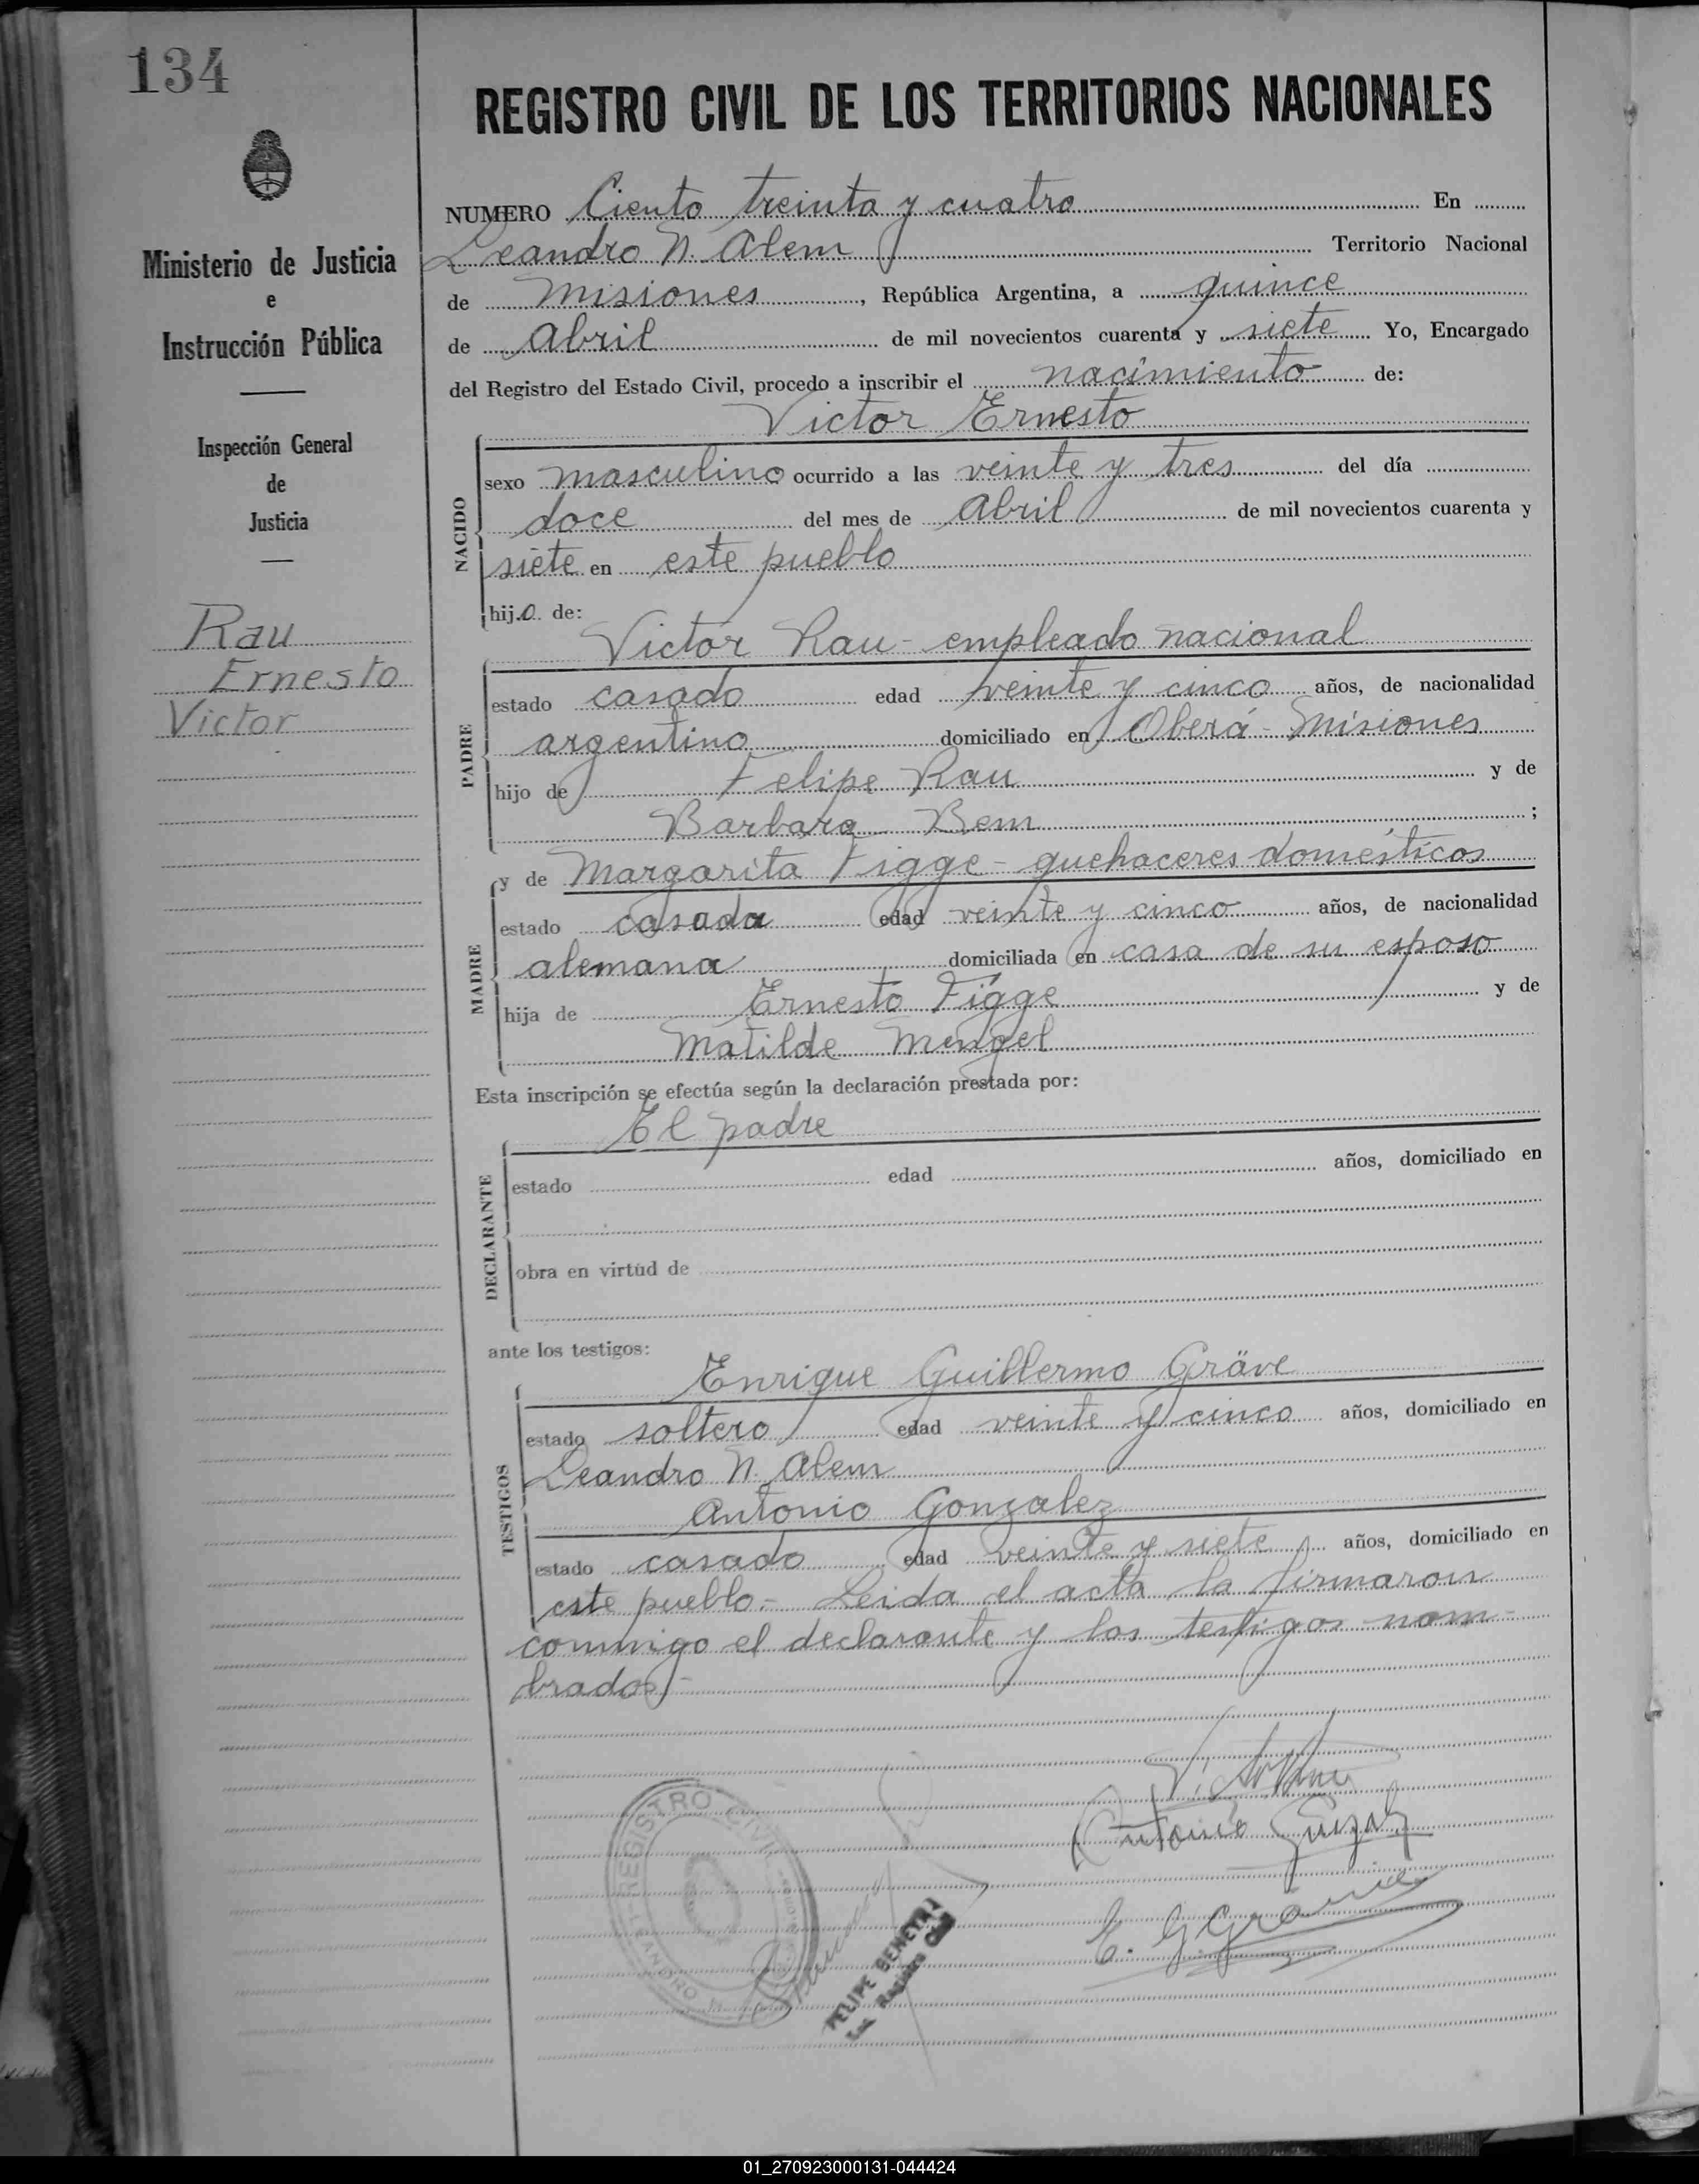 134
Ministerio de Justicia
e
Instrucción Pública
Inspección General
de
Justicia
Rau
Ernesto
Victor
REGISTRO CIVIL DE LOS TERRITORIOS NACIONALES
NUMERO Ciento treinta y cuatro En
Leandro N. Alem Territorio Nacional
de Misiones, República Argentina, a quince
de Abril de mil novecientos cuarenta y siete Yo, Encargado
del Registro del Estado Civil, procedo a inscribir el nacimiento de:
Victor Ernesto
NACIDO
sexo masculino ocurrido a las veinte y tres del día
doce del mes de Abril de mil novecientos cuarenta y
siete en este pueblo
hijo de:
Victor Rau - empleado nacional
PADRE
estado casado edad veinte y cinco años, de nacionalidad
argentino domiciliado en Oberá - Misiones
hijo de Felipe Rau y de
Barbara Bem ;
y de Margarita Figge - quehaceres domésticos
MADRE
estado casada edad veinte y cinco años, de nacionalidad
alemana domiciliada en casa de su esposo
hija de Ernesto Figge y de
Matilde Mengel
Esta inscripción se efectúa según la declaración prestada por:
El padre
DECLARANTE
estado edad años, domiciliado en
obra en virtud de
ante los testigos:
Enrique Guillermo Gräve
TESTIGOS
estado soltero edad veinte y cinco años, domiciliado en
Leandro N. Alem
Antonio Gonzalez
estado casado edad veinte y siete años, domiciliado en
este pueblo.- Leida el acta la firmaron
conmigo el declarante y los testigos nom-
brados-
Victor Rau
Antonio Gonzalez
E. G. Gräve
REGISTRO CIVIL
FELIPE BENEYAN
Enc. Registro Civil
01_270923000131-044424